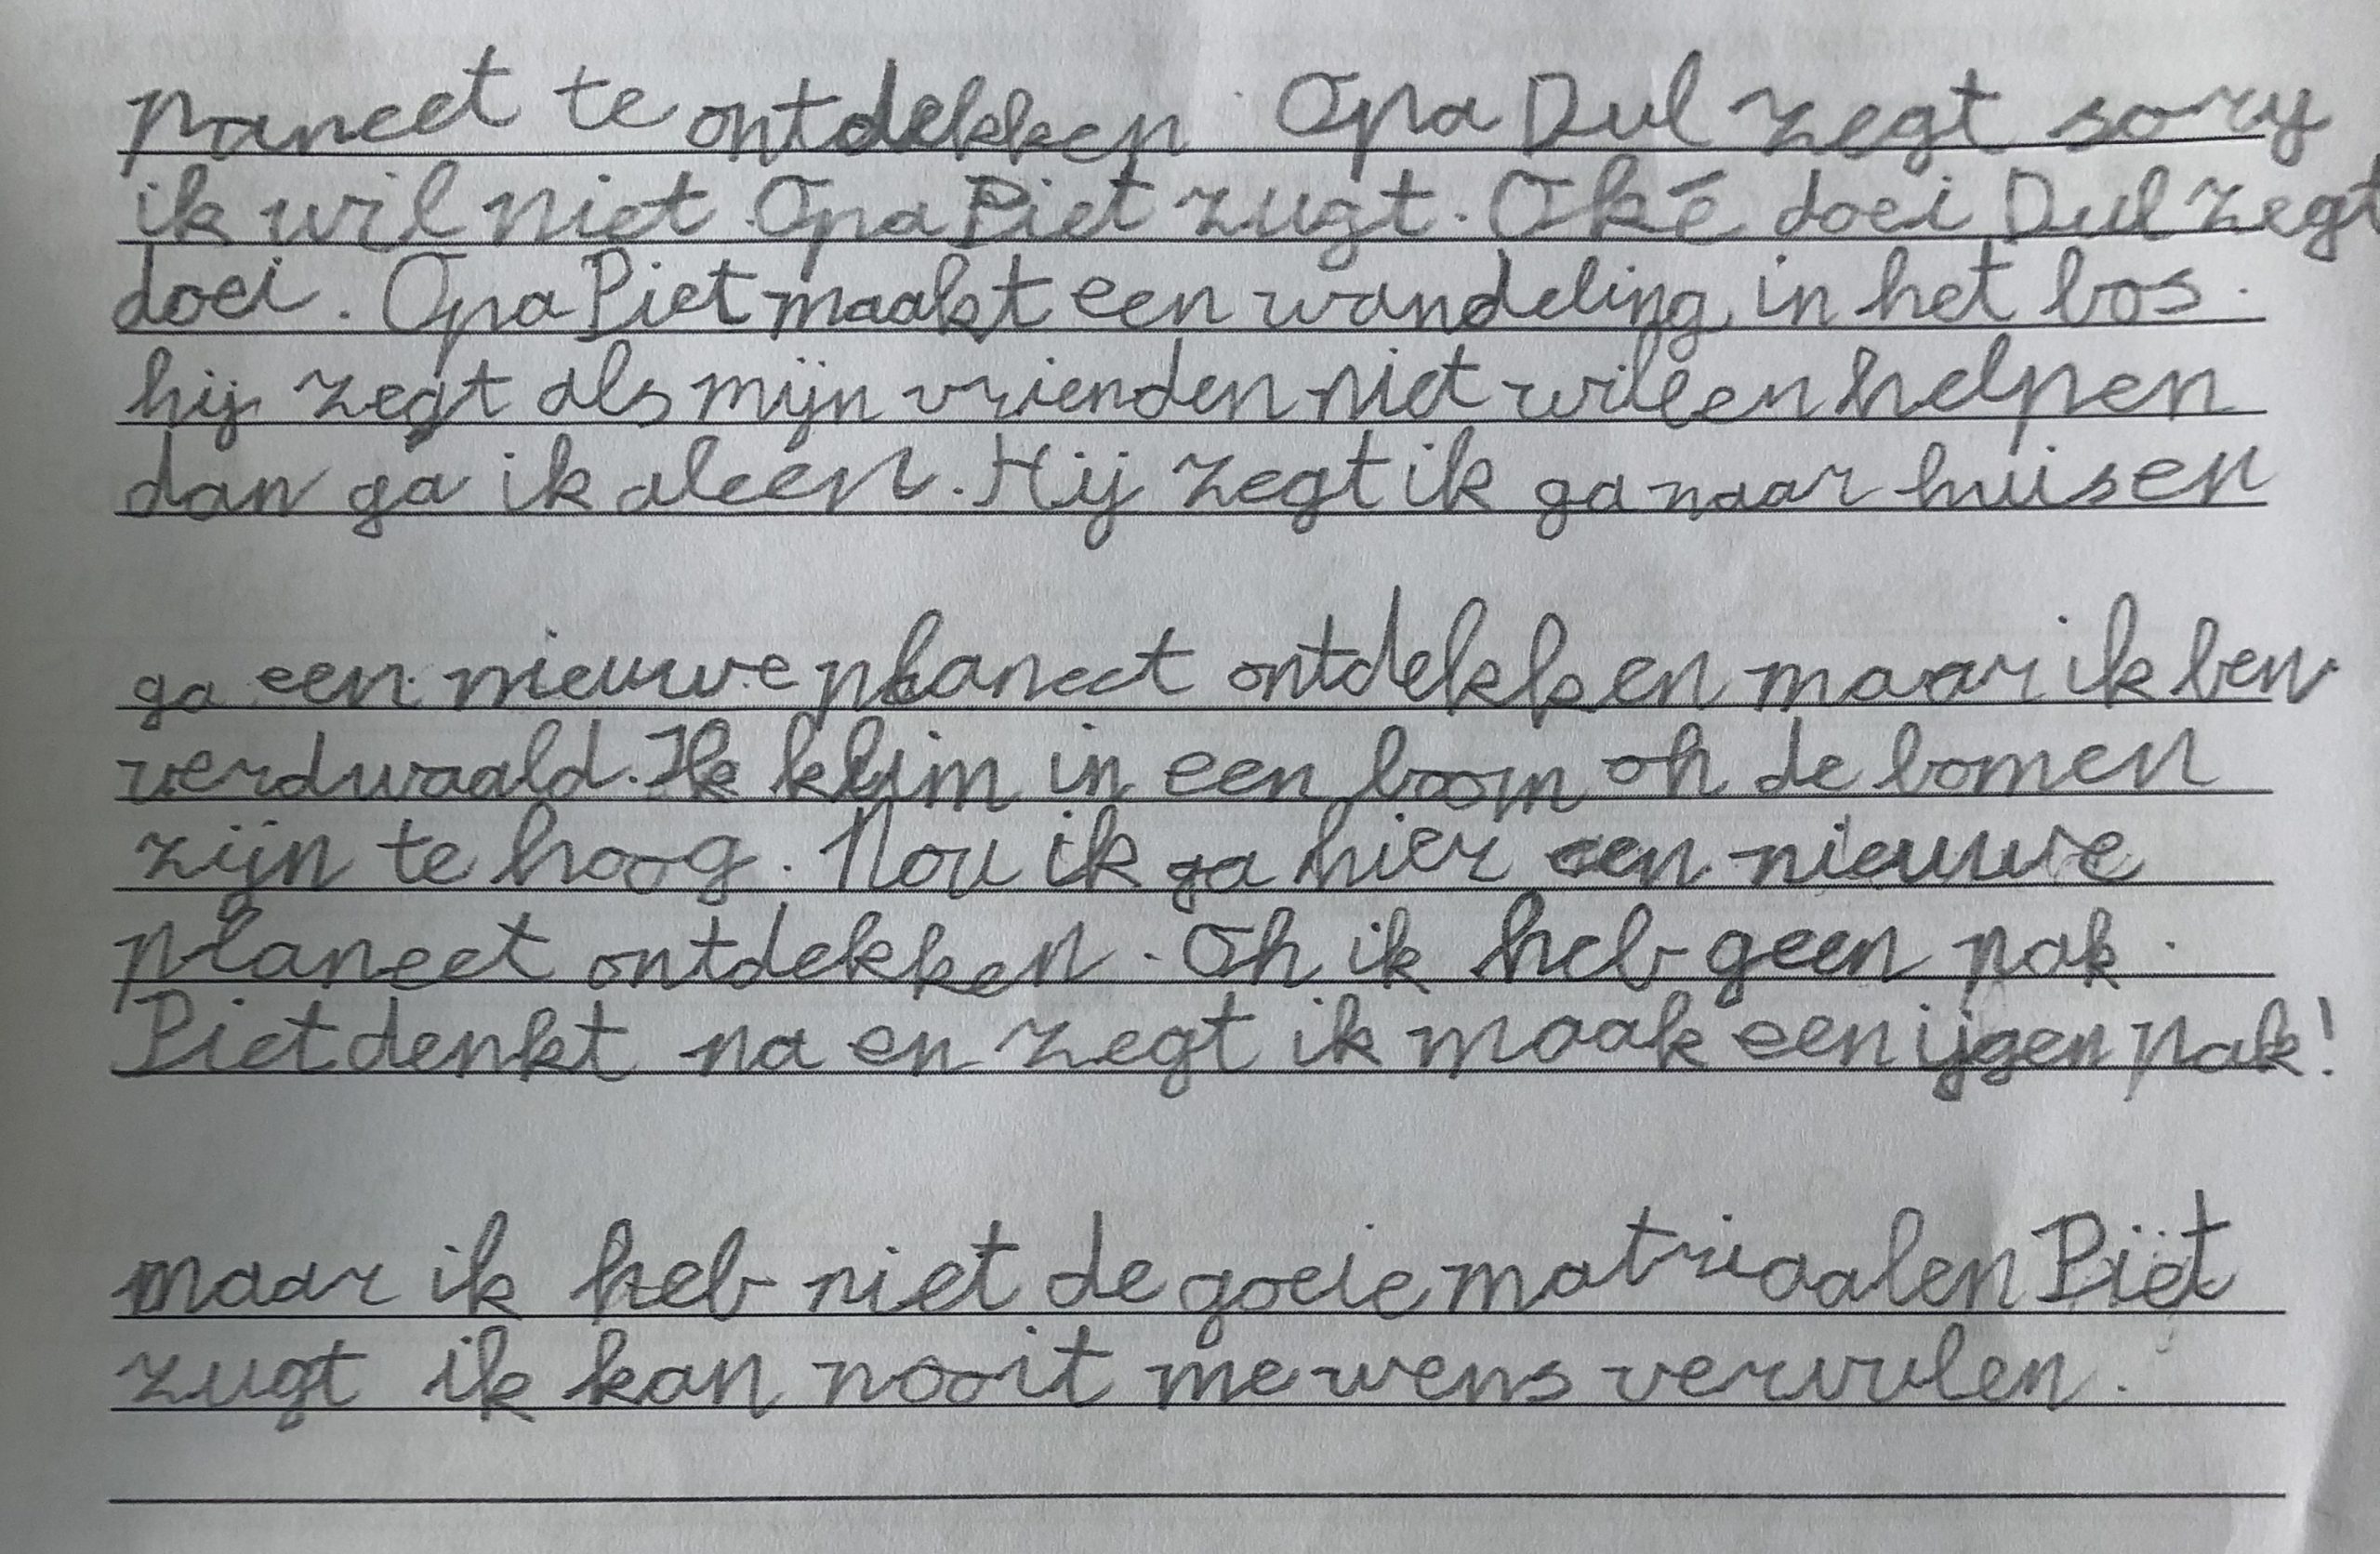 paneet te ontdekken. Opa Dul zegt sorry
ik wil niet. Opa Piet zugt. Oké doei Dul zegt
doei. Opa Piet maakt een wandeling in het bos.
hij zegt als mijn vrienden niet willen helpen
dan ga ik aleen. Hij zegt ik ga naar huis en
ga een nieuwe planeet ontdekken maar ik ben
verdwaald. Ik klim in een boom oh de bomen
zijn te hoog. Nou ik ga hier een nieuwe
planeet ontdekken. Oh ik heb geen pak.
Piet denkt na en zegt ik maak een ijgen pak!
maar ik heb niet de goeie matriaalen Piet
zugt ik kan nooit me wens vervulen.